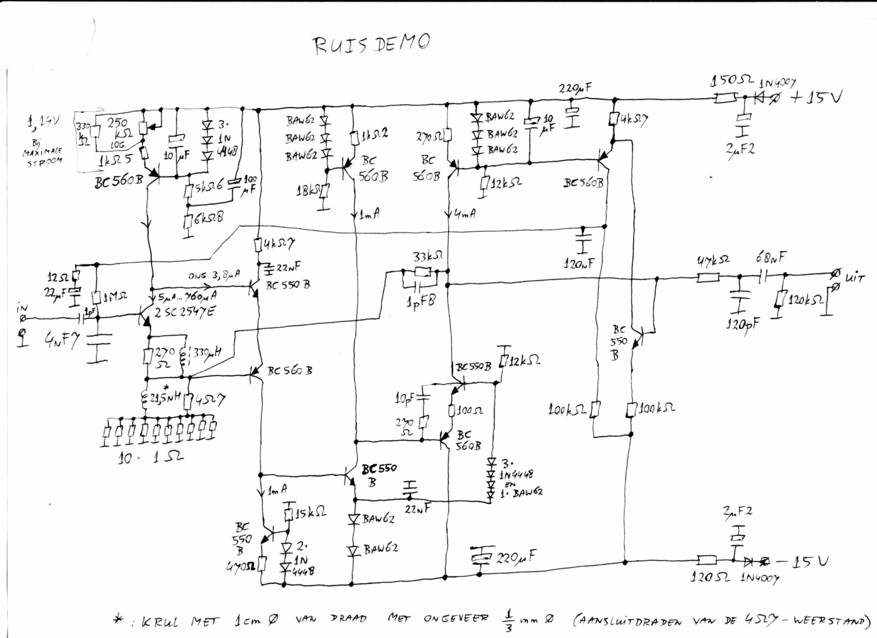 RUISDEMO
150Ω 1N4007
+15V
2µF2
220µF
1,14V
BIJ
MAXIMALE
STROOM
330
kΩ
250
kΩ
LOG
1kΩ5
10
µF
3.
1N
4448
100
µF
BC560B
5kΩ6
6kΩ8
BAW62
BAW62
BAW62
1kΩ2
BC
560B
18kΩ
1mA
270Ω
BC
560B
BAW62
BAW62
BAW62
10
µF
12kΩ
4mA
4kΩ7
BC560B
120nF
12Ω
22µF
1MΩ
1pF
in
4nF7
ONG. 3,8µA
5µA...760µA
2SC2547E
4kΩ7
22nF
BC550B
33kΩ
1pF8
47kΩ
68nF
UIT
120pF
120kΩ
270
Ω
330µH
BC560B
21,5nH
*
4Ω7
10 . 1Ω
BC
550
B
BC550B
12kΩ
10pF
270
Ω
100Ω
BC
560B
100kΩ
100kΩ
BC550
B
3.
1N4448
EN
1. BAW62
22nF
1mA
15kΩ
BC
550
B
470Ω
2.
1N
4448
BAW62
BAW62
220µF
2µF2
120Ω
1N4007
-15V
* : KRUL MET 1cm Ø VAN DRAAD MET ONGEVEER 1/3 mm Ø (AANSLUITDRADEN VAN DE 4Ω7-WEERSTAND)